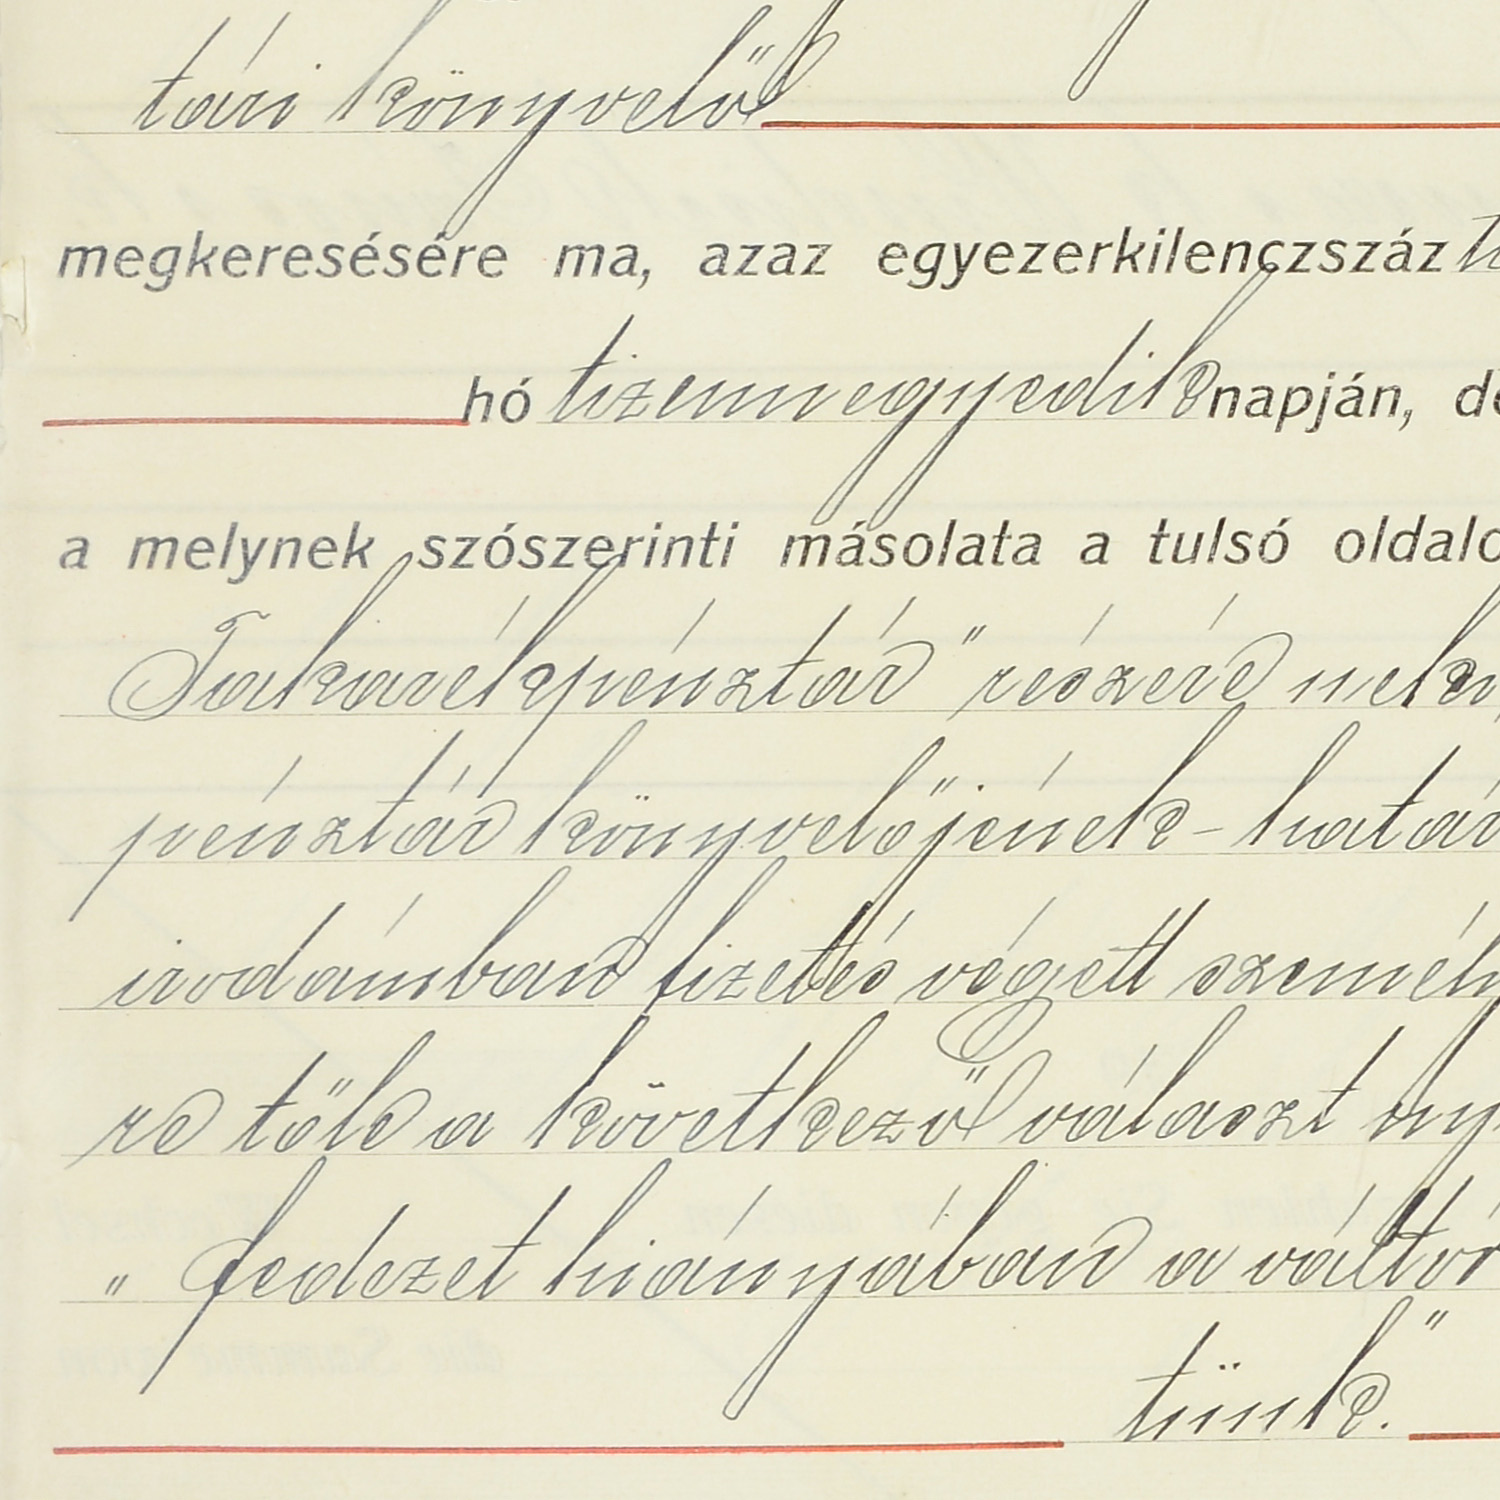 tári könyvelő
megkeresésére ma, azaz egyezerkilenczszáz
hó tizennegyedik napján, dé
a melynek szószerinti másolata a tulsó oldalo
Takarékpénztár" részére nek
pénztár könyvelőjének - hatá
irodámban fizetés végett személy
re tőle a következő választ ny
" fedezet hiányában a váltó
tünk."